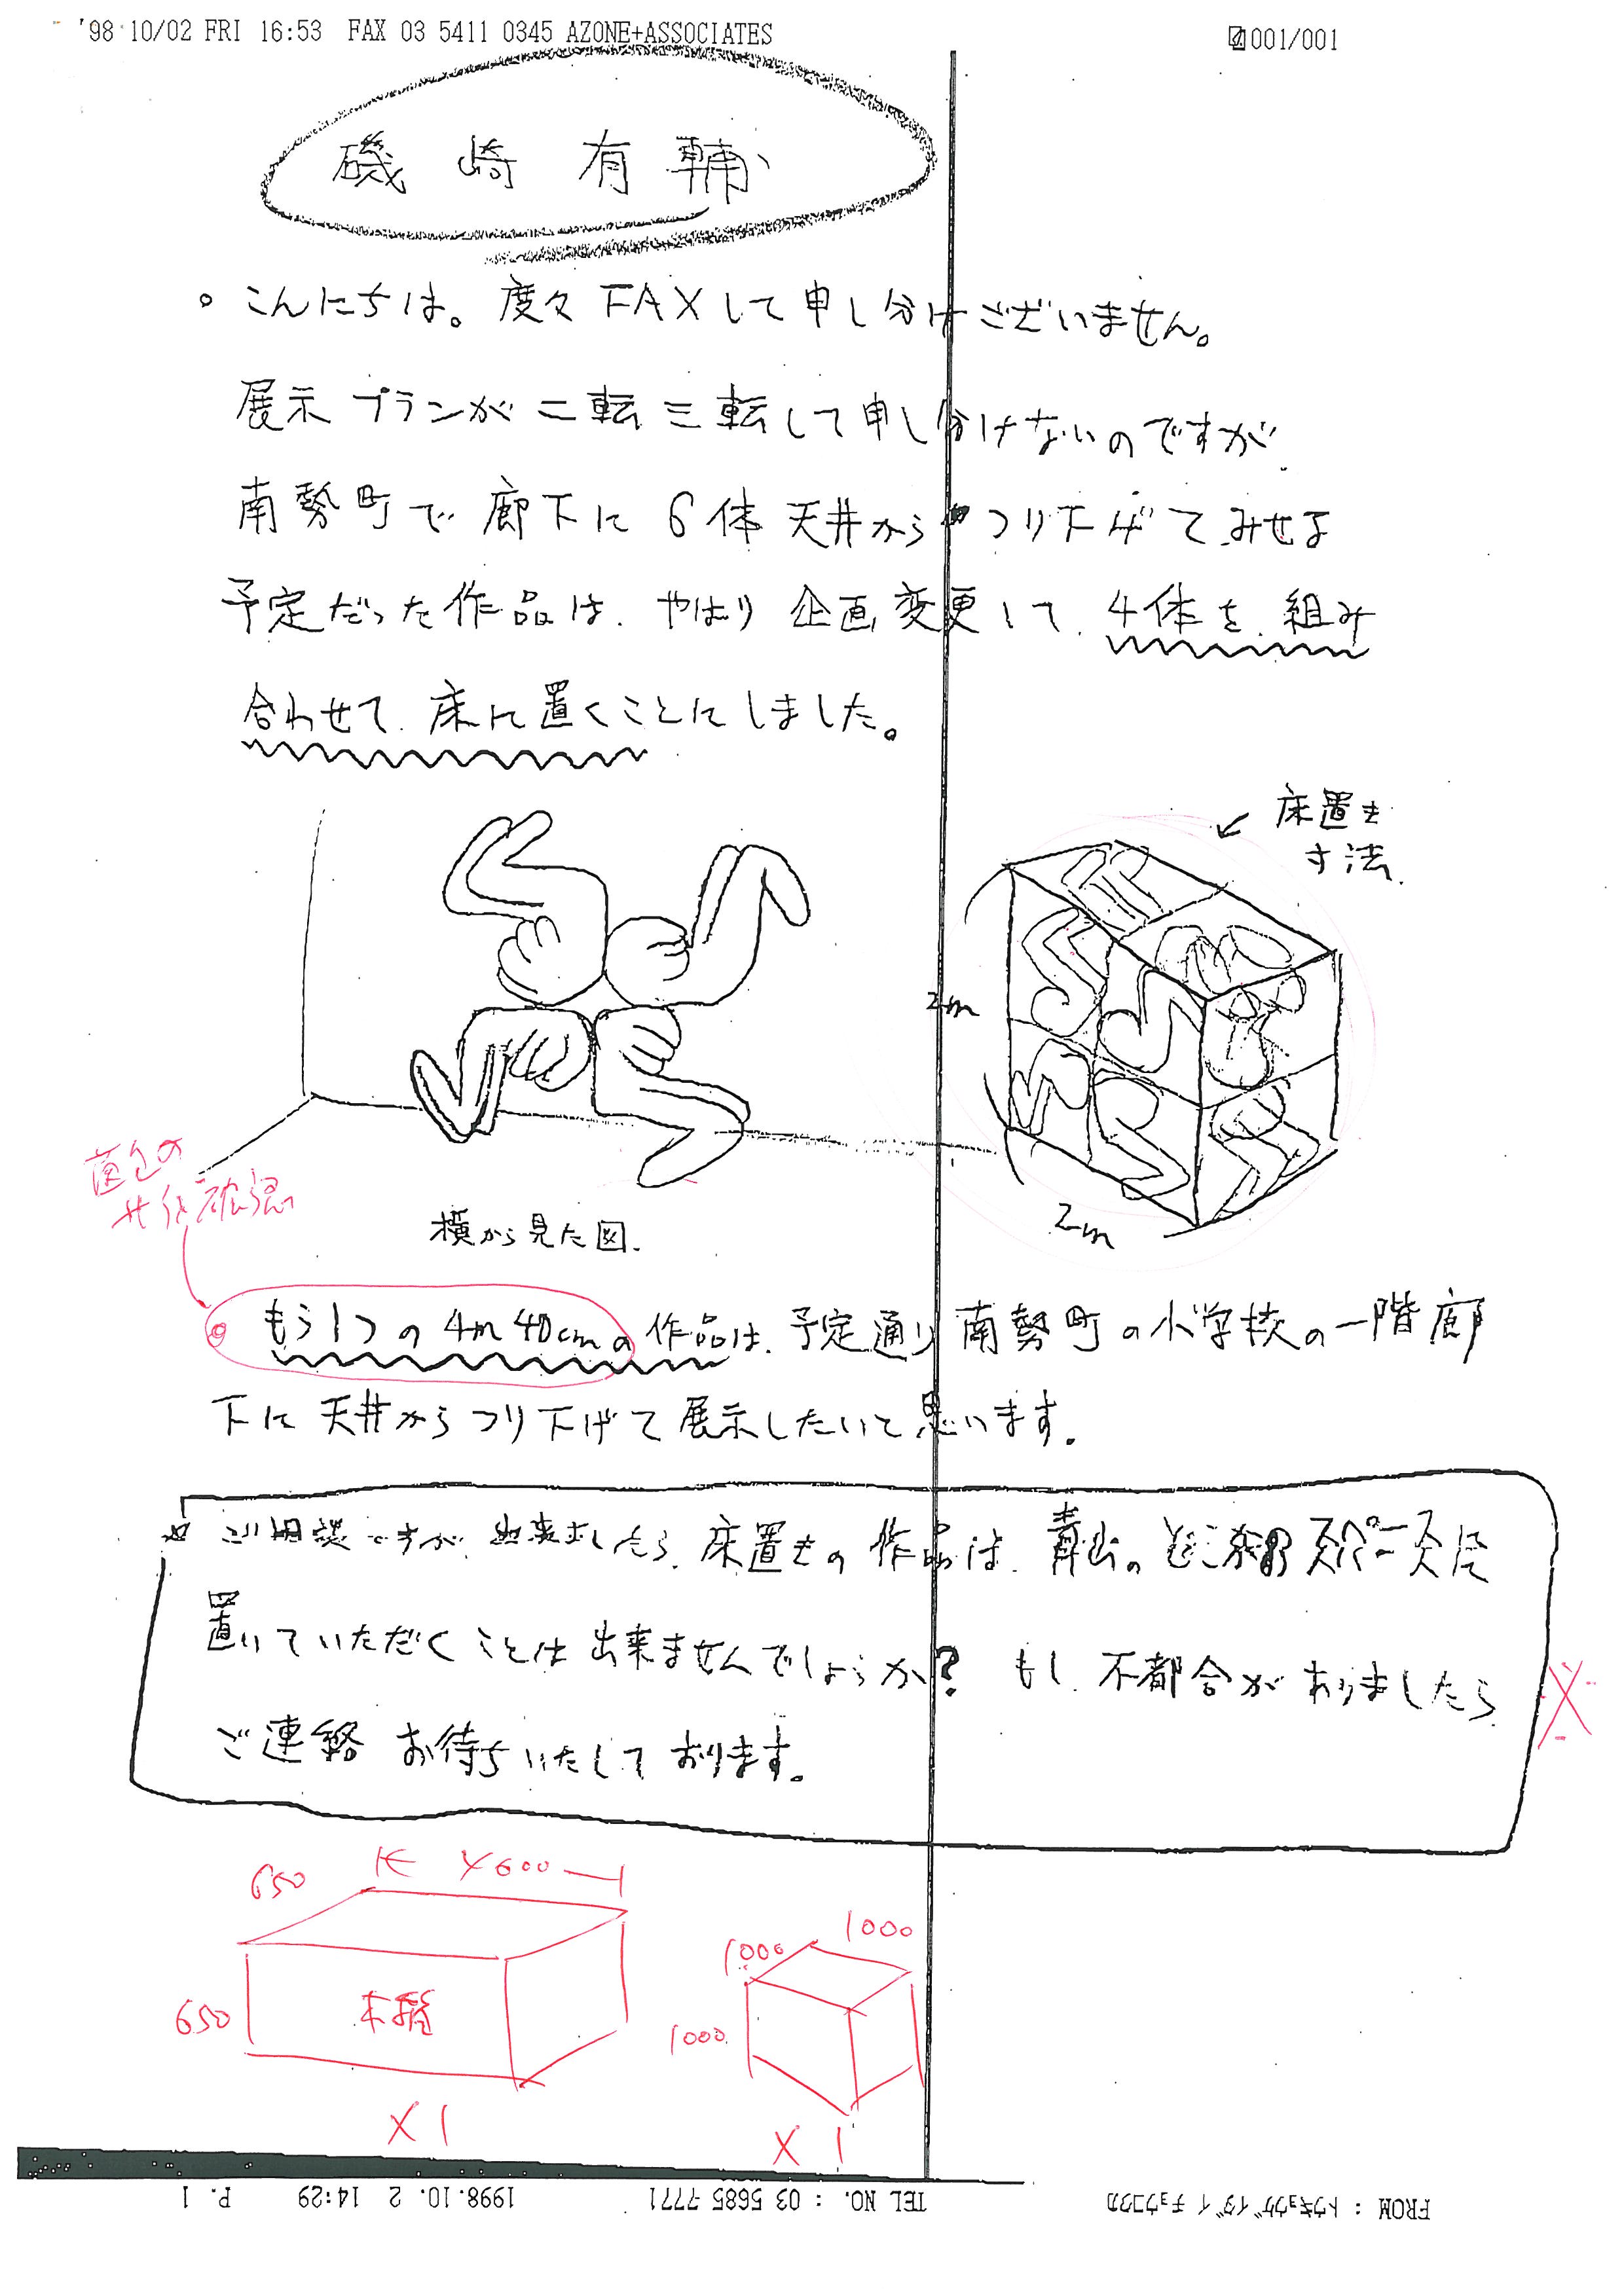 '98 10/02 FRI 16:53 FAX 03 5411 0345 AZONE+ASSOCIATES 001/001
磯崎有輔
。こんにちは。度々FAXして申し分けございません。
展示プランが二転三転して申し分けないのですが
南勢町で廊下に6体天井からつり下げてみせる
予定だった作品は、やはり企画変更して、4体を、組み
合わせて、床に置くことにしました。
床置き
寸法.
2m
2m
横から見た図.
確認
もう1つの4m40cmの作品は、予定通り南勢町の小学校の一階廊
下に天井からつり下げて展示したいと思います。
ご相談ですが、出来ましたら、床置きの作品は、青山のどこかのスペースに
置いていただくことは出来ませんでしょうか? もし、不都合がありましたら
ご連絡お待ちいたしております。
X
650 4600
650 木箱
X 1
1000 1000
1000
X 1
FROM : トウキョウゲイダイ チョウコクカ TEL NO. : 03 5685 7771 1998.10. 2 14:29 P. 1